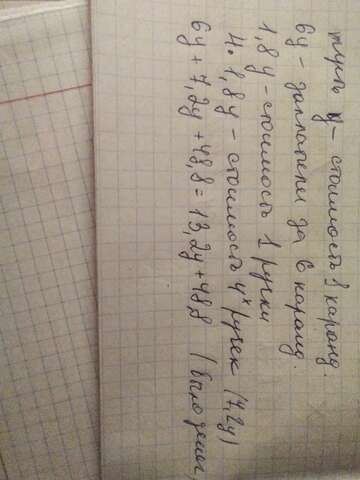 пусть y - стоимость 1 каранд.
6y - заплатили за 6 каранд.
1,8y - стоимость 1 ручки
4·1,8y - стоимость 4х ручек (7,2y)
6y + 7,2y + 48,8 = 13,2y + 48,8 (было денег)